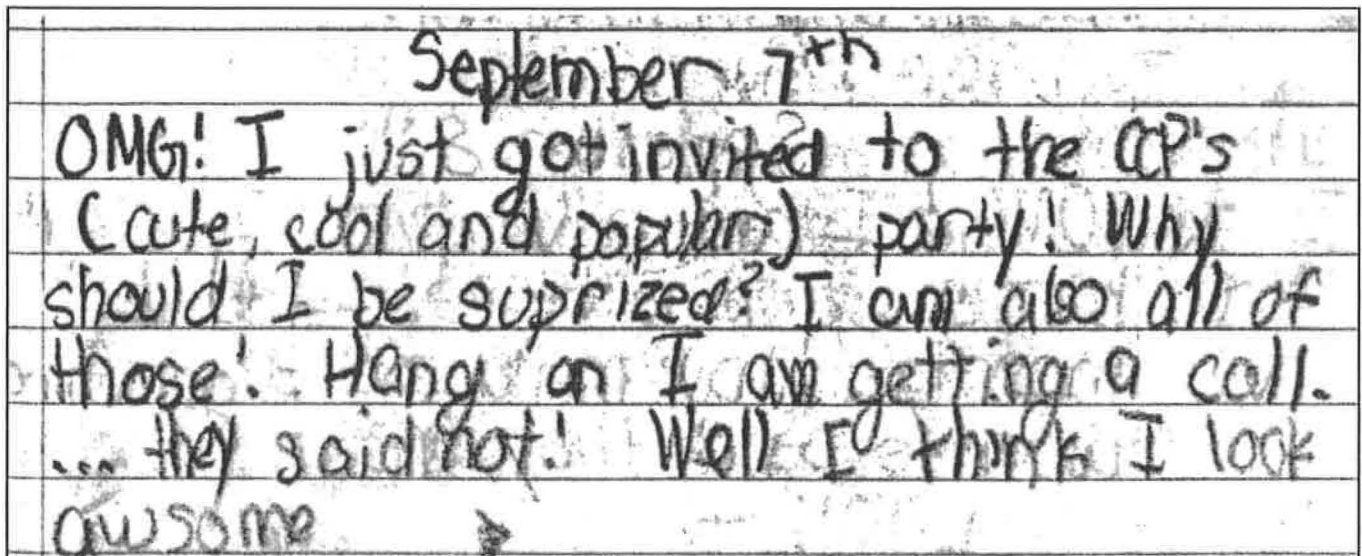 September 7th
OMG! I just got invited to the CCP's
(cute, cool and popular) party! Why
should I be suprized? I am also all of
those! Hang on I am getting a call.
... they said not! Well I think I look
awsome